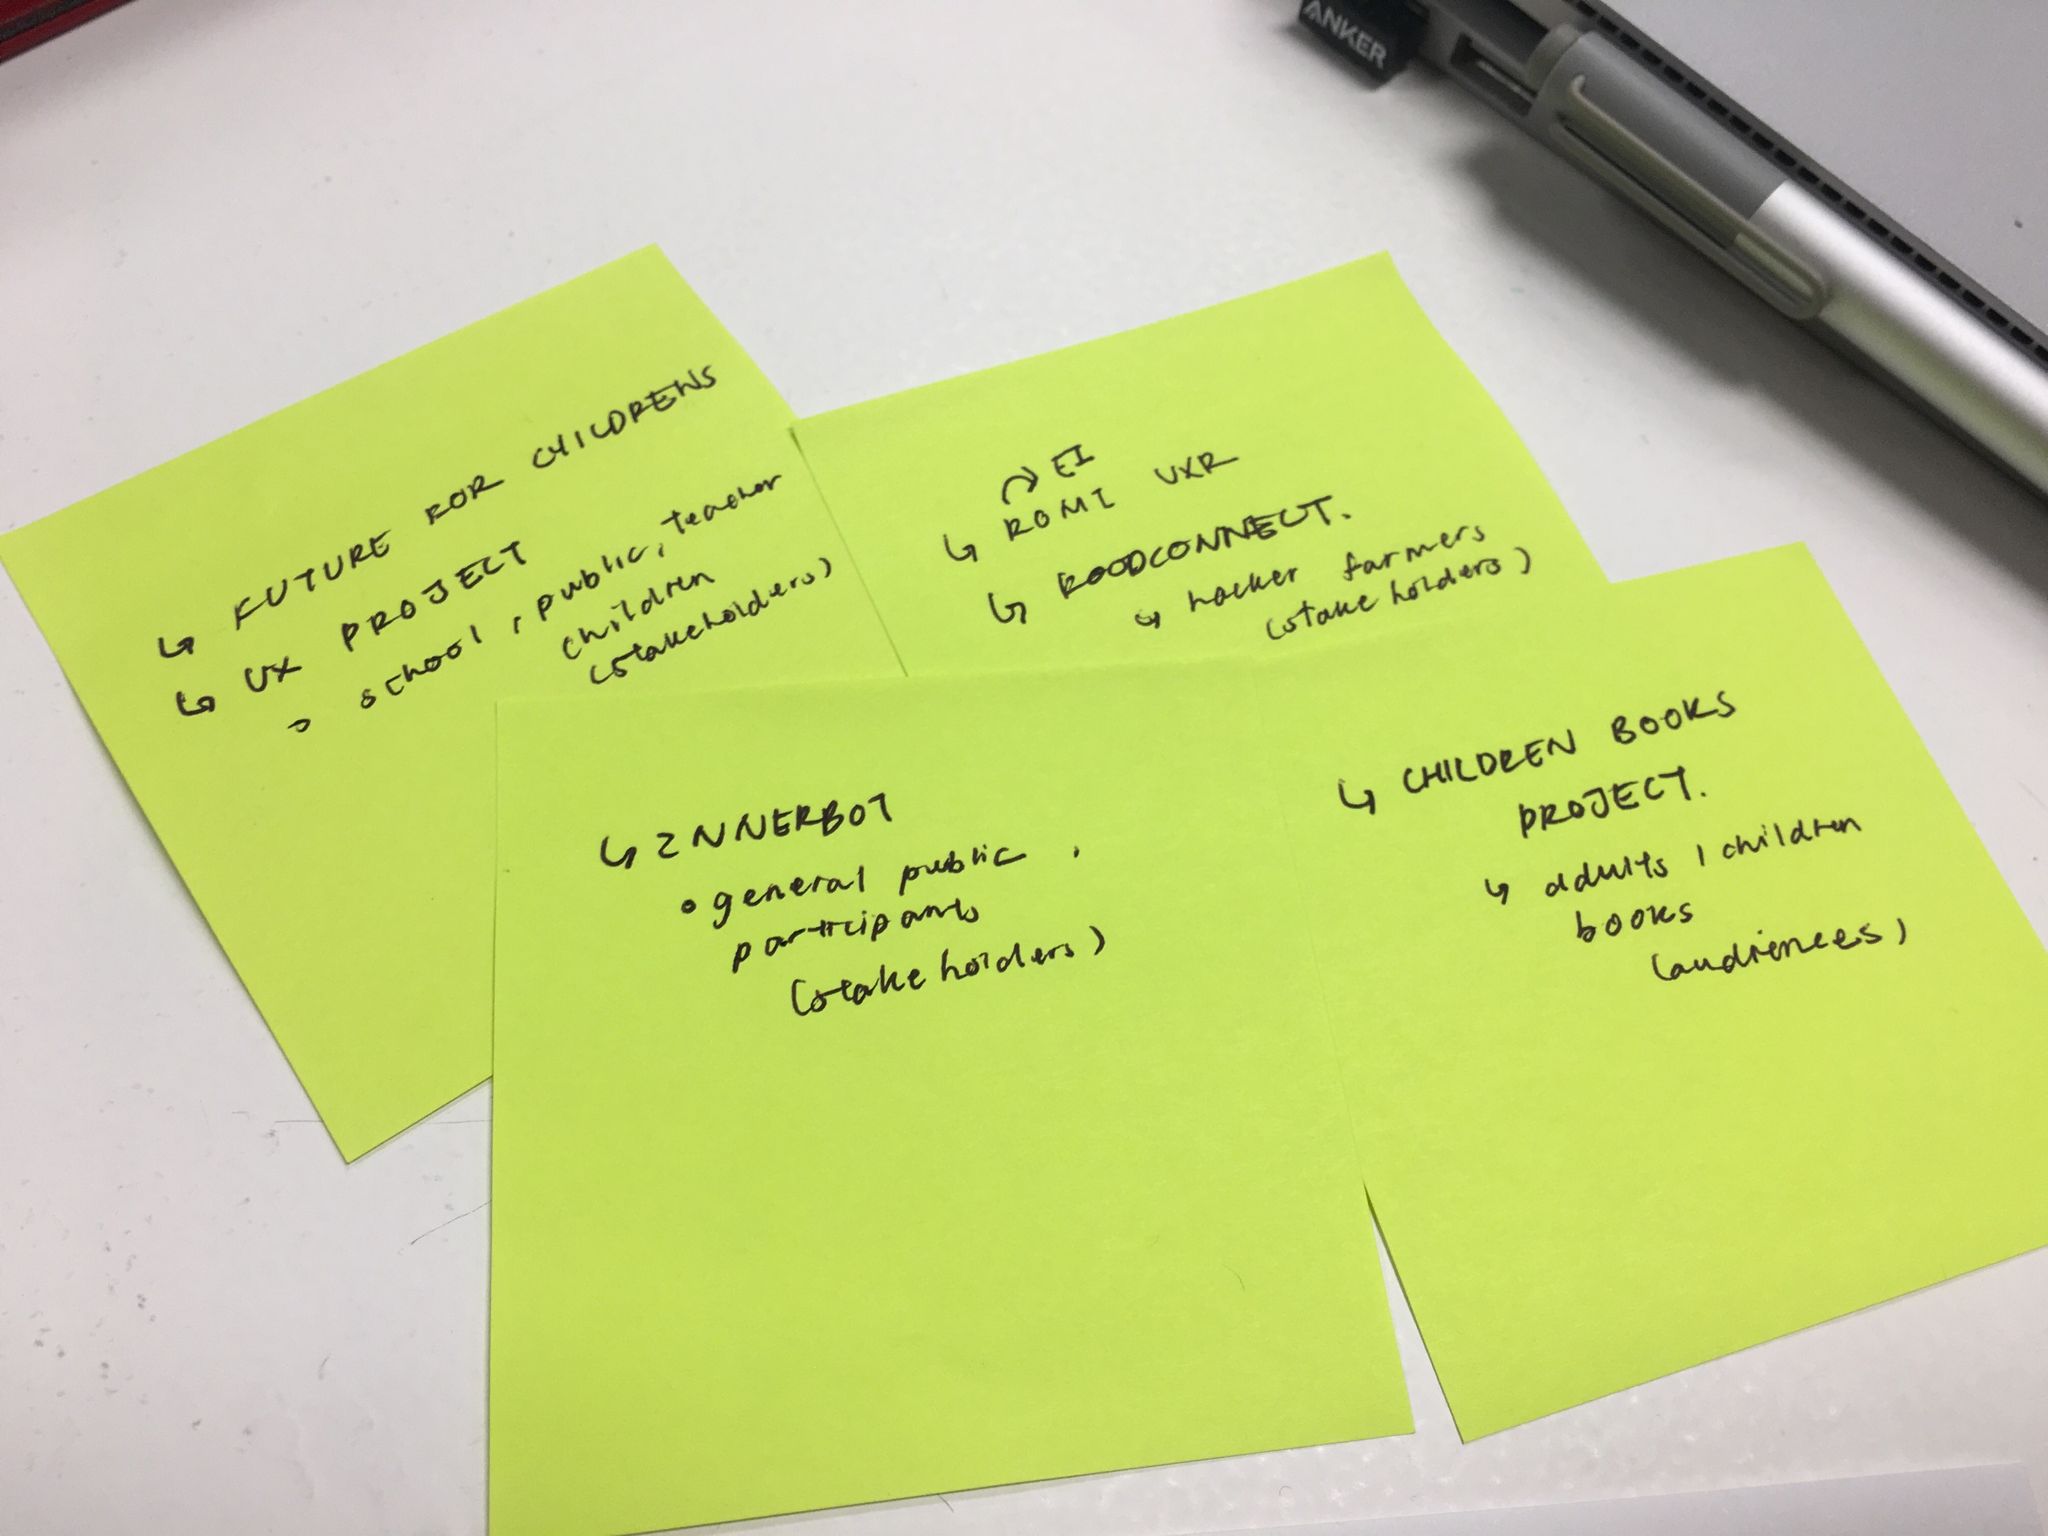 ↳ FUTURE FOR CHILDRENS
↳ UX PROJECT
∘ school, public, teacher
children
(stakeholders)
EI
↳ ROMI UXR
↳ FOODCONNECT.
↳ hacker farmers
(stakeholders)
↳ INNERBOT
• general public,
participants
(stakeholders)
↳ CHILDREN BOOKS
PROJECT.
↳ adults / children
books
(audiences)
ANKER